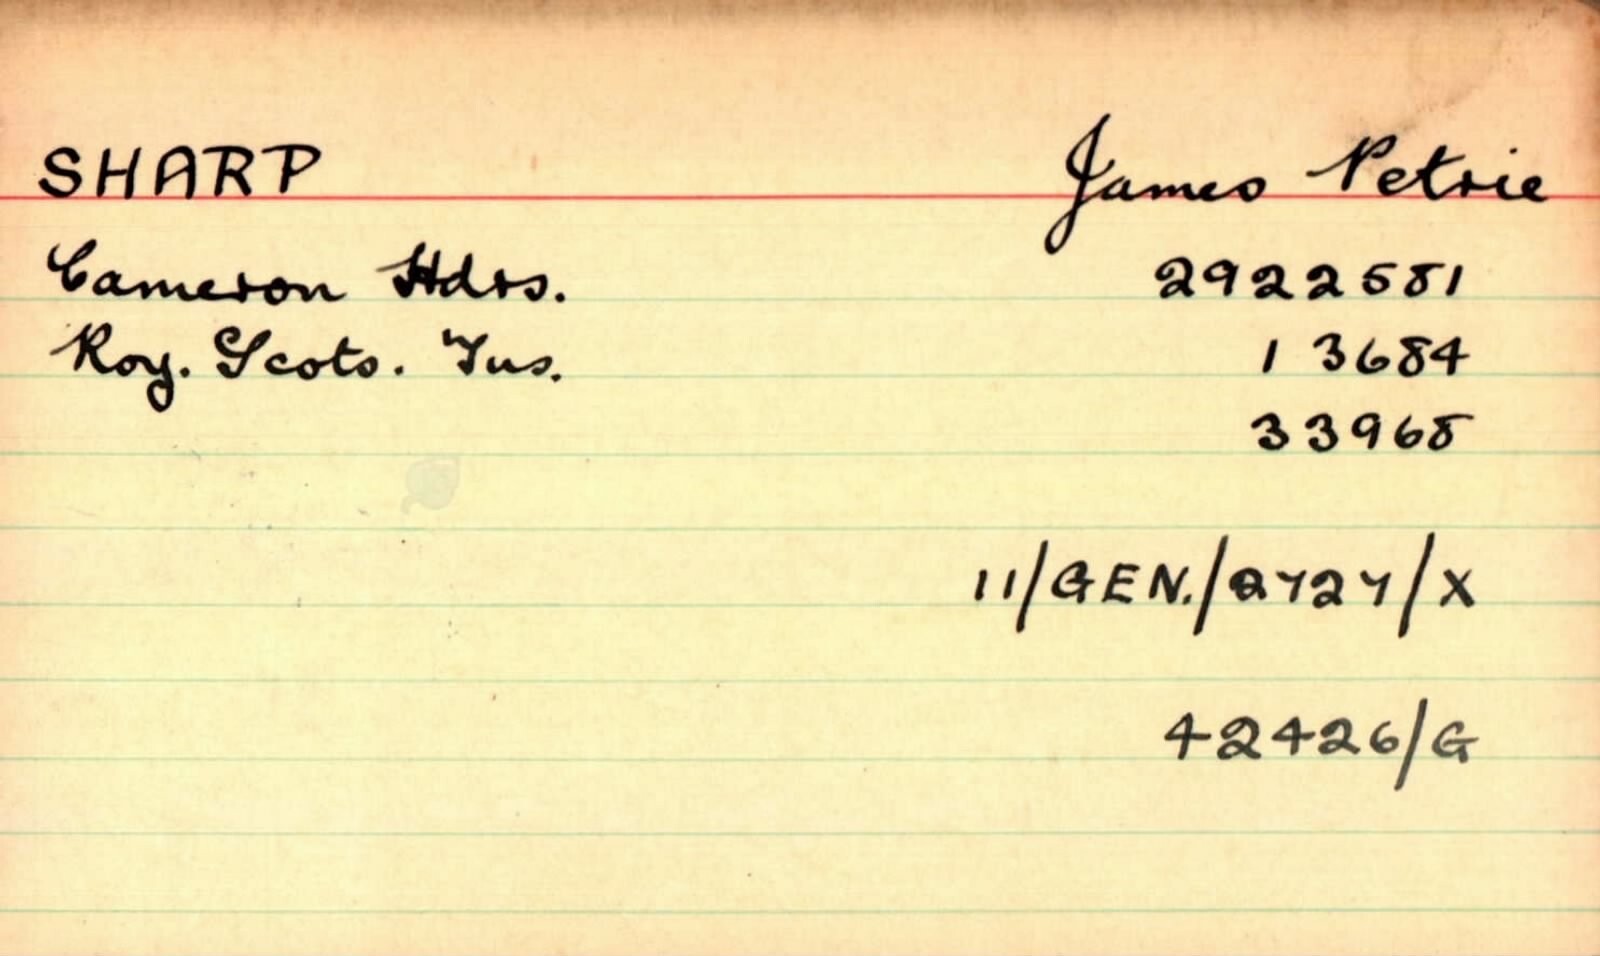 SHARP James Petrie
Cameron Hdrs. 2922581
Roy. Scots. Fus. 13684
33968
11/GEN./2727/X
42426/G